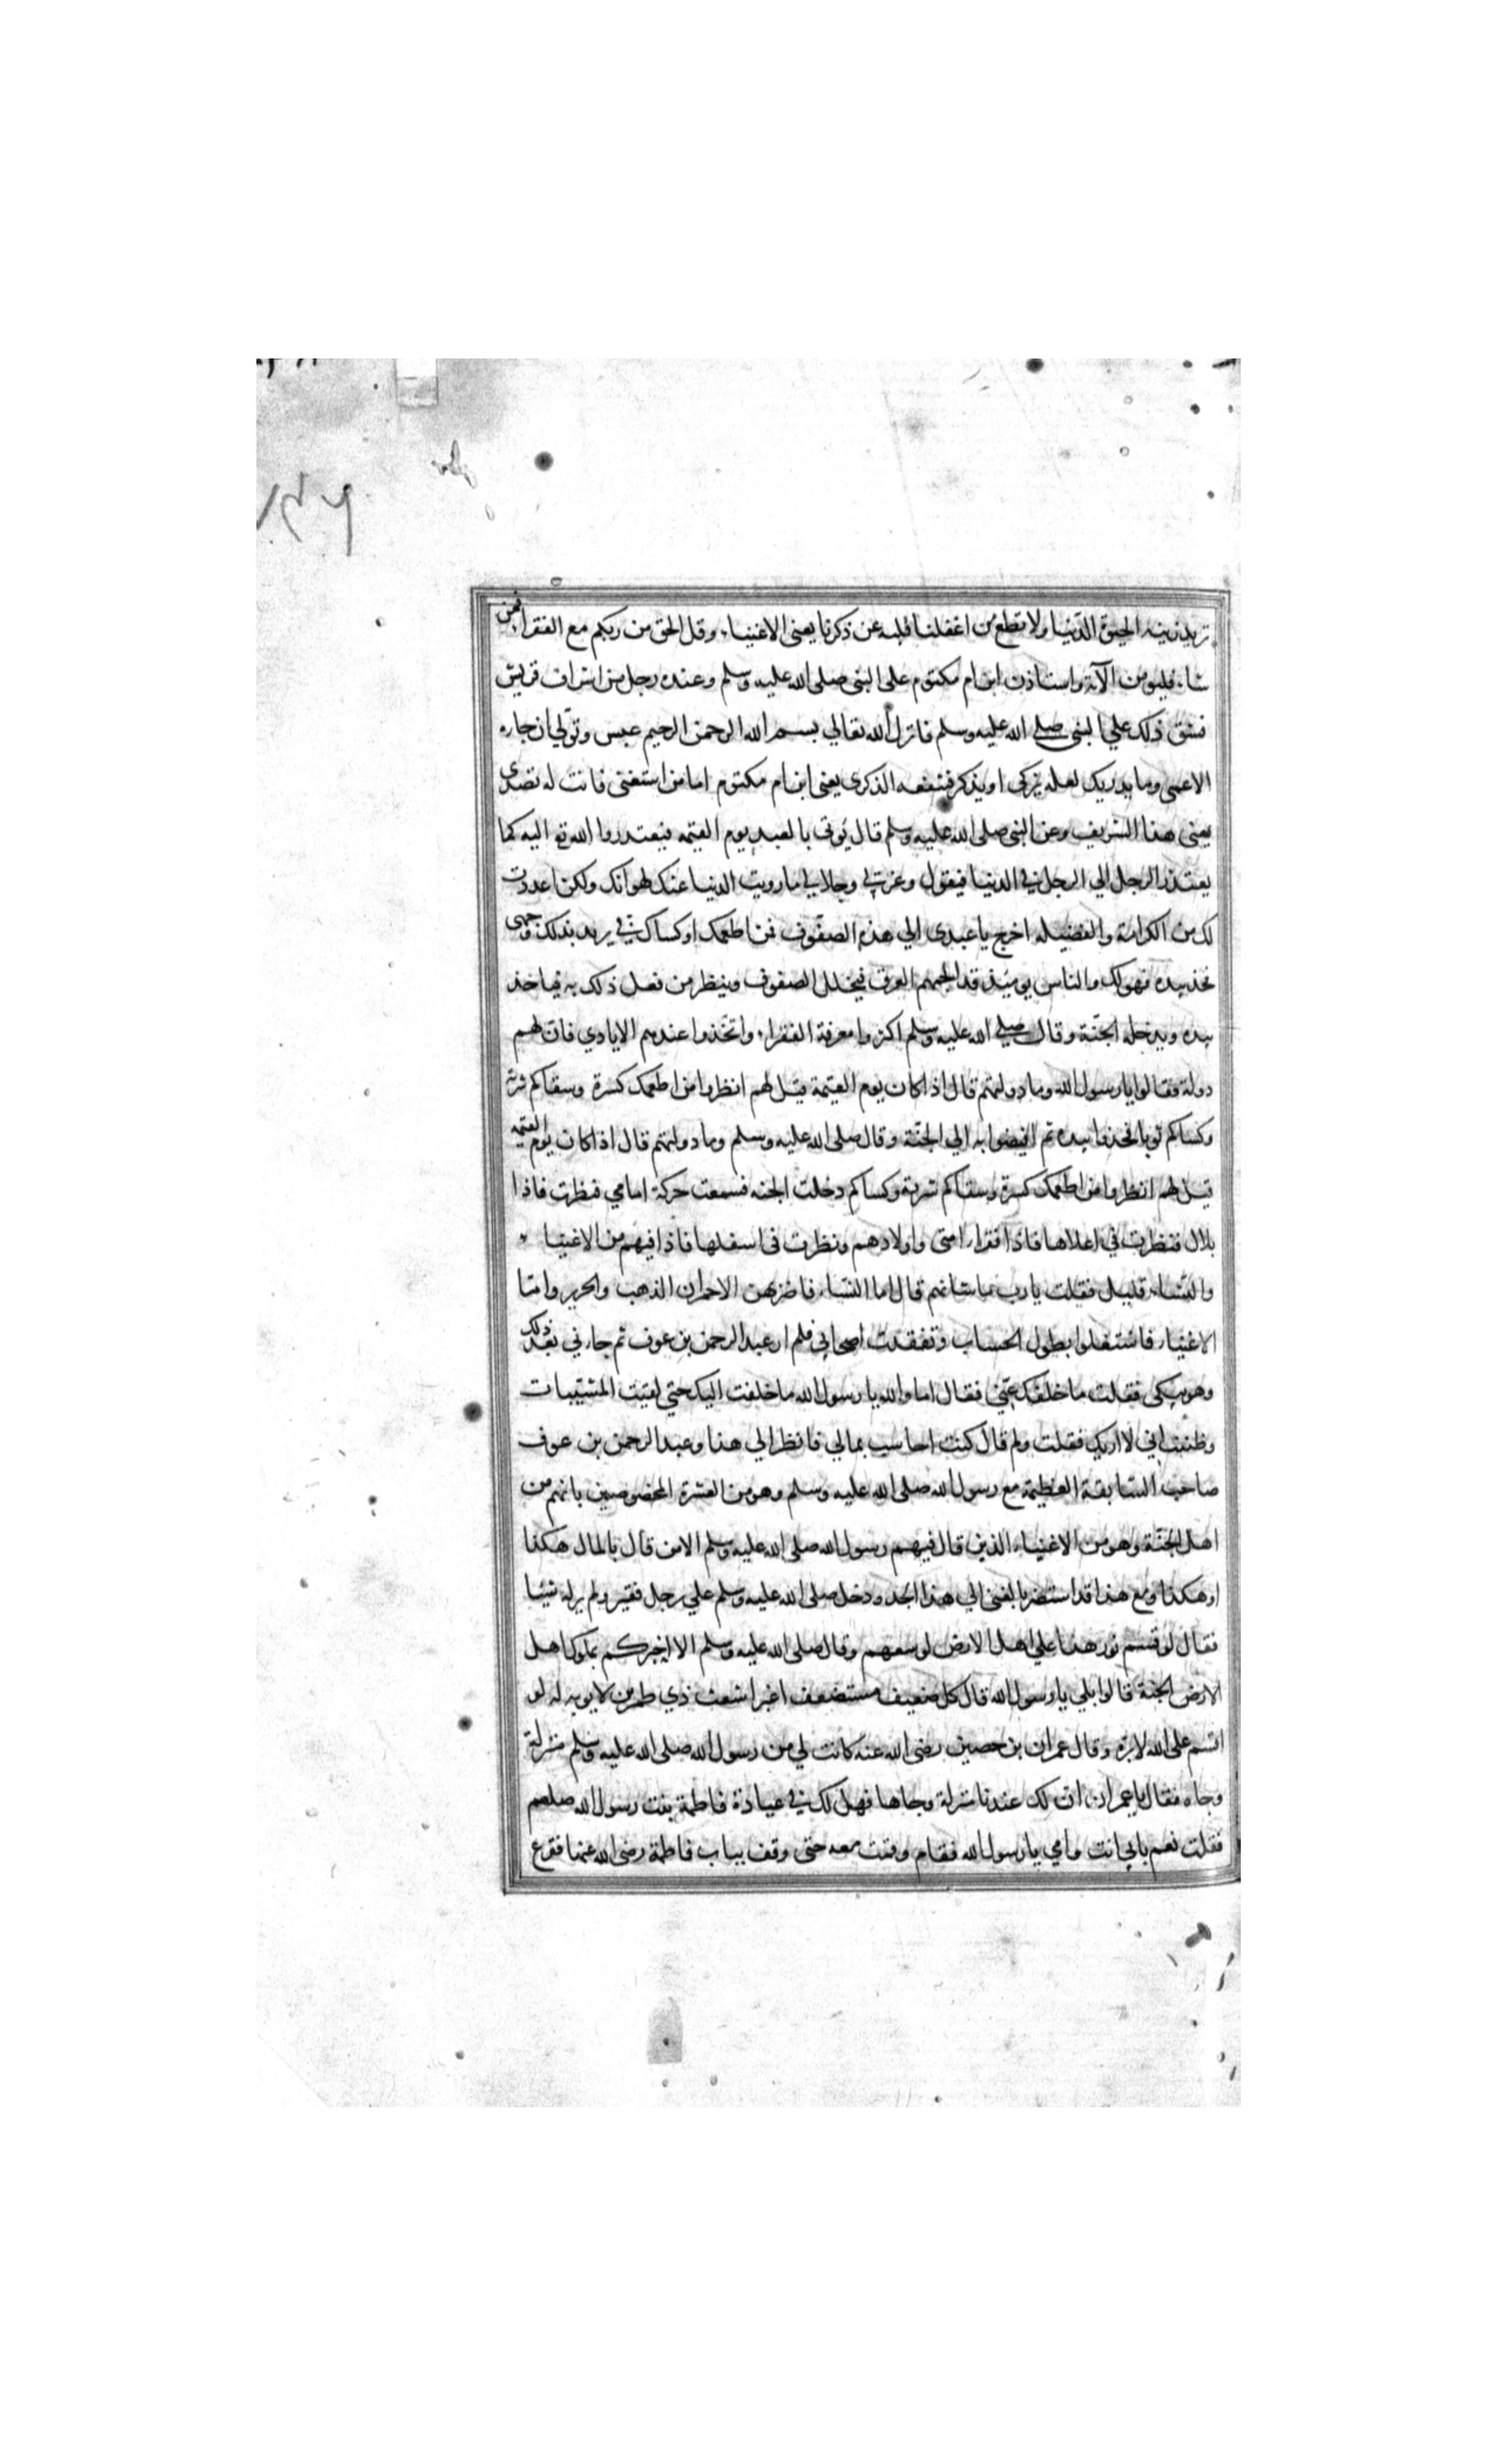 تريد زينه الحيوة الدنيا ولا تطع من اغفلنا قلبه عن ذكرنا يعنى الاغنياء وقل الحق من ربكم مع الفقرا فمن
شاء فليومن الآية واستاذن ابن ام مكتوم على النبى صلى الله عليه وسلم وعنده رجل من اشراف قريش
فشق ذلك علي النبى صلى الله عليه وسلم فانزل الله تعالي بسم الله الرحمن الرحيم عبس وتولي ان جاءه
الاعمى وما يدريك لعله يزكى او يذكر فتنفعه الذكرى يعنى ابن ام مكتوم اما من استغنى فانت له تصدى
يعنى هذا الشريف وعن النبى صلى الله عليه وسلم قال يؤتى بالعبد يوم القيمه فيعتدروا الله تع اليه كما
يعتذر الرجل الي الرجل في الدنيا فيقول وعزتي وجلالي مارويت الدنيا عنك لهوانك ولكن اعددت
لك من الكرامة والفضيله اخرج يا عبدى الي هذه الصفوف فمن اطعمك او كساك في يريد بذلك وجهى
فخذ بيده فهو لك والناس يومئذ قد الجمهم العرق فيتخلل الصفوف وينظر من فعل ذلك به فياخذ
بيده ويدخله الجنة وقال صلي الله عليه وسلم اكثروا معرفة الفقراء واتخذوا عندهم الايادي فان لهم
دولة فقالوا يا رسول الله وما دولتهم قال اذا كان يوم القيمة قيل لهم انظروا من اطعمك كسرة وسقاكم شربة
وكساكم ثوبا فخذوا بيده ثم افيضوا به الي الجنة وقال صلى الله عليه وسلم وما دولتهم قال اذا كان يوم القيمه
قيل لهم انظروا من اطعمك كسرة وسقاكم شربة وكساكم دخلت الجنه فسمعت حركة امامي فنظرت فاذا
بلال فنظرت في اعلاها فاذا فقراء امتى واولادهم ونظرت فى اسفلها فاذا فيهم من الاغنيا
والنساء قليل فقلت يارب ما شانهم قال اما النساء فاضربهن الاحمران الذهب والحرير واما
الاغنياء فاشتغلوا بطول الحساب وتفقدت اصحابي فلم ار عبد الرحمن بن عوف ثم جاءني بعد ذلك
وهو يبكى فقلت ما خلفك عني فقال اما والله يا رسول الله ما خلفت اليك حتي لقيت المشيبات
وظننت اني لا اريك فقلت ولم قال كنت احاسب بمالي فانظر الي هذا وعبد الرحمن بن عوف
صاحب السابقة العظيمة مع رسول الله صلى الله عليه وسلم وهو من العشرة المخصوصين بانهم من
اهل الجنة وهو من الاغنياء الذين قال فيهم رسول الله صلى الله عليه وسلم الا من قال بالمال هكذا
او هكذا ومع هذا قد استضر بالغنى الي هذا الحد ودخل صلى الله عليه وسلم علي رجل فقير ولم ير له شيئا
فقال لو قسم نور هذا علي اهل الارض لوسعهم وقال صلى الله عليه وسلم الا اخبركم بملوك اهل
الارض الجنة قالوا بلي يا رسول الله قال كل ضعيف مستضعف اغبر اشعث ذي طمرين لا يوبه له لو
اقسم على الله لابره وقال عمران بن حصين رضى الله عنه كانت لي من رسول الله صلى الله عليه وسلم منزلة
وجاه فقال يا عمران ان لك عندنا منزلة وجاها فهل لك في عيادة فاطمة بنت رسول الله صلعم
فقلت نعم بابي انت وامي يا رسول الله فقام وقمت معه حتى وقف بباب فاطمة رضى الله عنها فقرع